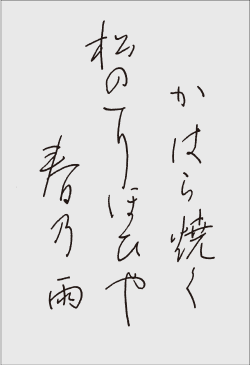 かはら焼く
松のにほひや
春乃雨